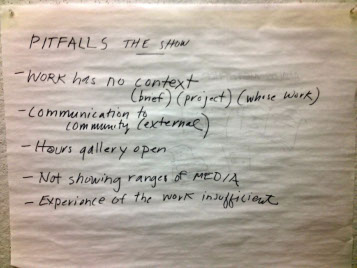 PITFALLS THE SHOW
- WORK HAS NO CONTEXT
(brief) (project) (whose work)
- Communication to
community (external)
- Hours gallery open
- Not showing ranges of MEDIA
- Experience of the work insufficient